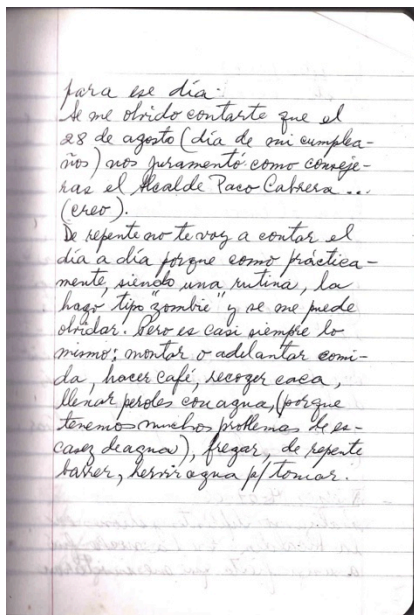 para ese día.
Se me olvido contarte que el
28 de agosto (día de mi cumplea-
ños) nos juramentó como conseje-
ras el Alcalde Paco Cabrera ...
(creo).
De repente no te voy a contar el
día a día porque como práctica-
mente, siendo una rutina, la
hago tipo "zombie" y se me puede
olvidar. Pero es casi siempre lo
mismo: montar o adelantar comi-
da, hacer café, recoger caca,
llenar peroles con agua, (porque
tenemos muchos problemas de es-
casez de agua), fregar, de repente
barrer, hervir agua p/ tomar.